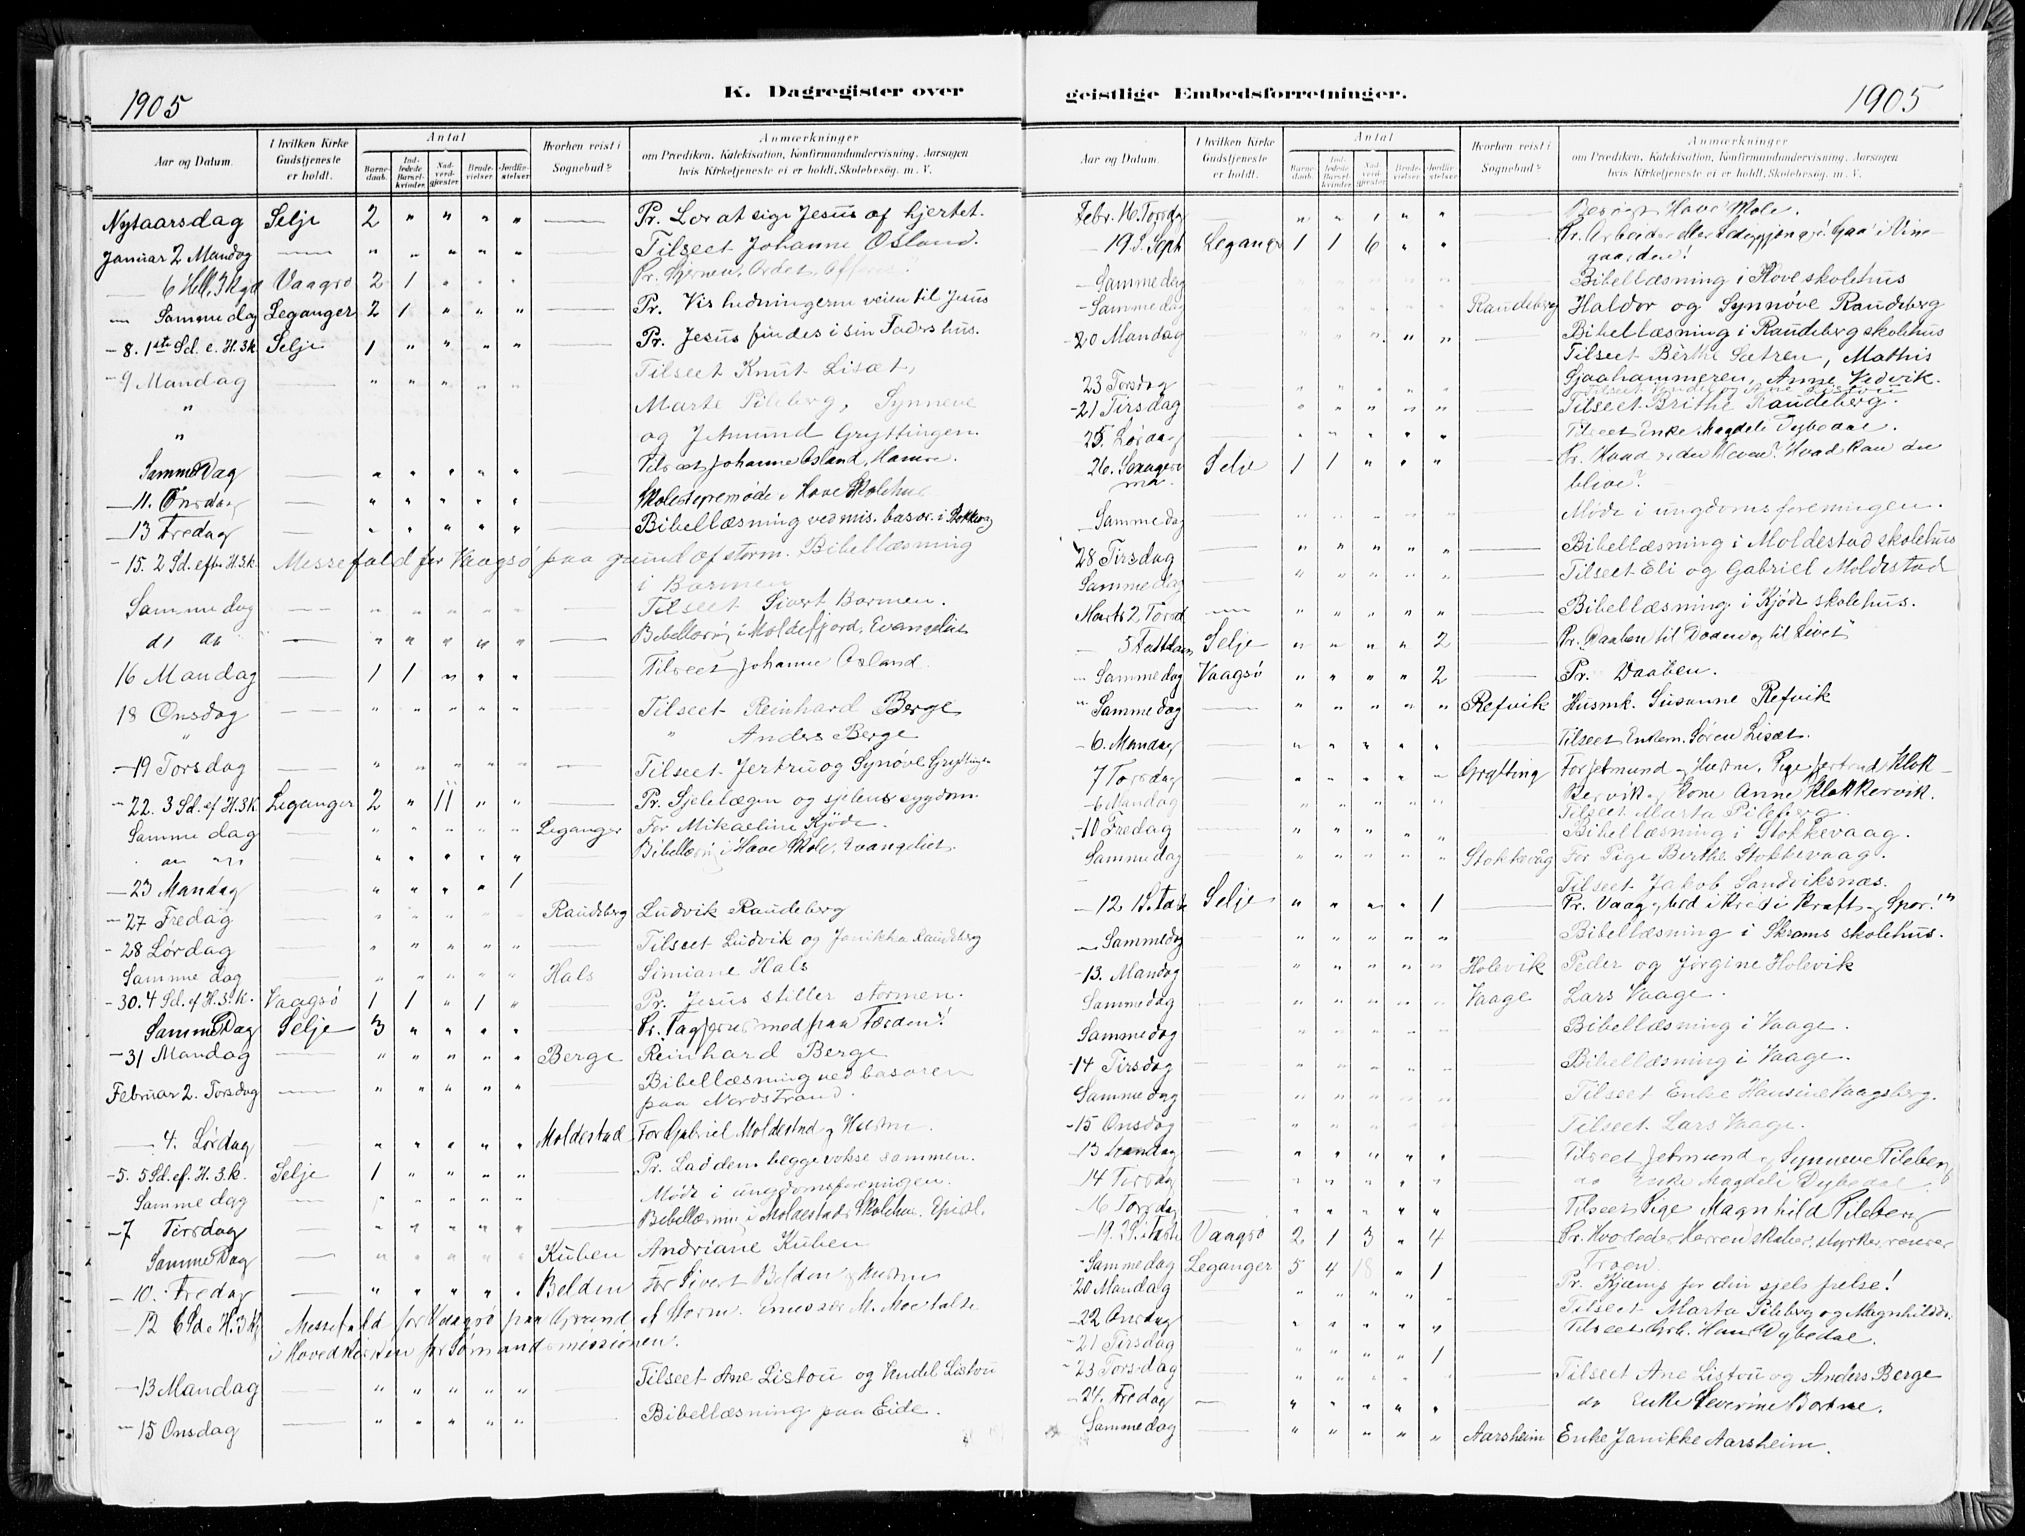 1905
K. Dagregister over
Aar og Datum.
I hvilken Kirke Gudstjeneste er holdt.
Antal
Barnedaab.
Indledede Barselkvinder.
Nadverdgjester.
Brudevielser.
Jordfæstelser.
Hvorhen reist i Sognebud?
Anmærkninger
om Prædiken, Katekisation, Konfirmandundervisning, Aarsagen
hvis Kirketjeneste ei er holdt, Skolebesøg. m. V.
Nytaarsdag Selje 2 " " " " Pr. Lær at sige Jesus af hjertet.
Januar 2 Mandag " " " " " Tilseet Johanne Osland.
6 Hell. 3 kgd Vaagsø 2 1 " " " Pr. Stjernen, Ordet, Offeret.
Samme dag Leganger 2 1 " " " Pr. Vis hedningerne veien til Jesus
8. 1ste Sd. e. H. 3 k. Selje 1 " " " " Pr. Jesus findes i sin Faders hus.
9 Mandag " " " " " Tilseet Knut Liset,
" Marte Pileberg, Synneve
" og Jetmund Gryttingen.
Samme Dag " " " " " Tilseet Johanne Osland, Hamre.
11. Onsdag " " " " " Skolestyremøde i Hove Skolehus
13 Fredag " " " " " Bibellæsning ved mis. basar. i Stokkevaag
15. 2 Sd. efter H. 3 k. Messefald for Vaagsø paa grund af storm. Bibellæsning
i Barmen
Samme dag " " " " " Tilseet Sivert Barmen.
do do " " " " " Bibellæsn i Moldefjord, Evangeliet
16 Mandag 1 1 " " " Tilseet Johanne Osland.
18 Onsdag " " " " " Tilseet Reinhard Berge
" " Anders Berge
19 Torsdag " " " " " Tilseet Jertru og Synøve Gryttingen
22. 3 Sd. ef H. 3 k Leganger 2 " 11 " " Pr. Sjelelægen og sjelens sygdom.
Samme dag " " " " " Leganger For Mikaeline Kjøde.
" " " " " Bibellæsn i Hove Skole, Evangeliet.
23 Mandag " " " " 1
27 Fredag " " " " " Raudeberg Ludvik Raudeberg
28 Lørdag " " " " " Tilseet Ludvik og Janikka Raudeberg
Samme dag " " " " " Hals Simiane Hals
30. 4 Sd. ef H. 3. k. Vaagsø 1 1 " 1 " Pr. Jesus stiller stormen.
Samme Dag Selje 3 " " " " Pr. "Tag Jesus med paa Færden"!
31 Mandag " " " " " Berge Reinhard Berge
Februar 2. Torsdag " " " " " Bibellæsning ved basaren
paa Nordstrand.
4. Lørdag " " " " " Moldestad For Gabriel Moldestad og Hustru.
5. 5 Sd. ef. H. 3. k. Selje 1 " " " " Pr. Lad dem begge vokse sammen.
Samme dag " " " " " Møde i ungdomsforeningen.
7 Tirsdag " " " " " Bibellæsning i Moldestads Skolehus. Epistl.
Samme Dag " " " " " Kuben Andriane Kuben
10. Fredag " " " " " Belden For Sivert Belden og Hustru
12 6 Sd e H. 3 kg Messefald for Vaagsø paa Grund af Storm. Emissær M. Moe talte
i Hovedkirken for Sømandsmissionen.
13 Mandag " " " " " Tilseet Ane Listou og Vendel Listou
15 Onsdag " " " " " Bibellæsning paa Eide.
geistlige Embedsforretninger.
1905
Aar og Datum.
I hvilken Kirke Gudstjeneste er holdt.
Antal
Barnedaab.
Indledede Barselkvinder.
Nadverdgjester.
Brudevielser.
Jordfæstelser.
Hvorhen reist i Sognebud?
Anmærkninger
om Prædiken, Katekisation, Konfirmandundervisning, Aarsagen
hvis Kirketjeneste ei er holdt, Skolebesøg. m. V.
Febr. 16 Torsdag " " " " " Besøgt Hove Skole.
19 S. Sept Leganger 1 1 6 " " Pr. Arbeider eller Lediggjænger! Gaa i Vin-
gaarden!
Samme dag Bibellæsning i Hove skolehus
Samme dag Raudeberg Haldor og Synnøve Raudeberg
20 Mandag " " " " " Bibellæsning i Raudeberg skolehus
Tilseet Berthe Sætren, Mathis
Sjaahammeren, Anne Vedvik.
23 Torsdag " " " " "
21 Tirsdag " " " " " Tilseet Brithe Raudeberg.
25. Lørdag " " " " " Tilseet Enke Magdeli Dybedal.
26. Sexagesima Selje 1 1 " " " Pr. Hvad er din Haven? Hvad kan du
blive?
Samme dag " " " " " Møde i ungdomsforeningen.
28 Tirsdag " " " " " Bibellæsning i Moldestad skolehus
Samme dag " " " " " Tilseet Eli og Gabriel Moldestad
Marts 2 Torsd " " " " " Bibellæsning i Kjøde skolehus.
5 Fastelavn Selje " " " " 2 Pr. "Daaben til Døden og til Livet"
Samme dag Vaagsø " " " " 2 Pr. Daaben.
Samme dag " " " " " Refvik Husmk. Susanne Refvik
6. Mandag " " " " " Tilseet Enkem. Søren Liset.
7 Tirsdag " " " " " Grytting For Jetmund og Hustru. Pige Jertrud Klok-
6 Mandag " " " " " kervik og Kone Anne Klokkervik.
Tilseet Marta Pileberg.
10 Fredag " " " " " Bibellæsning i Stokkevaag.
Samme dag " " " " " Stokkevåg For Pige Berthe Stokkevaag.
Tilseet Jakob Sandviksnæs.
12 1 S. Faste Selje " " " " 1 Pr. Vaag og bed i Kristi Kraft og Spor!"
Samme dag " " " " " Bibellæsning i Skrams skolehus.
13. Mandag " " " " " Holevik Peder og Jørgine Holevik
Samme dag " " " " " Vaage Lars Vaage.
Samme dag " " " " " Bibellæsning i Vaage.
14 Tirsdag " " " " " Bibellæsning i Vaage.
Samme dag " " " " " Tilseet Enke Hansine Vaagsberg.
15 Onsdag " " " " " Tilseet Lars Vaage.
13 Mandag " " " " " Tilseet Jetmund og Synneve Pileberg
14 Tirsdag " " " " " do Enke Magdeli Dybedal
16 Torsdag " " " " " Tilseet Pige Magnhild Pileberg
19. 2 S. i Faste Vaagsø 2 1 3 " 4 Pr. Hvorledes Herren skaber, styrker, renser
Troen.
Samme dag Leganger 5 4 18 " 1 Pr. Kjæmp for din sjels frelse!
20 Mandag Tilseet Marta Pileberg og Magnhild do.
22 Onsdag " " " " " Tilseet Grb. Hans Dybedal.
21 Tirsdag " " " " "
23 Torsdag " " " " 1 Tilseet Ane Listou og Anders Berge
24. Fredag " " " " " do Enke Severine Bortne.
Samme dag " " " " " Aarsheim Enke Janikke Aarsheim.